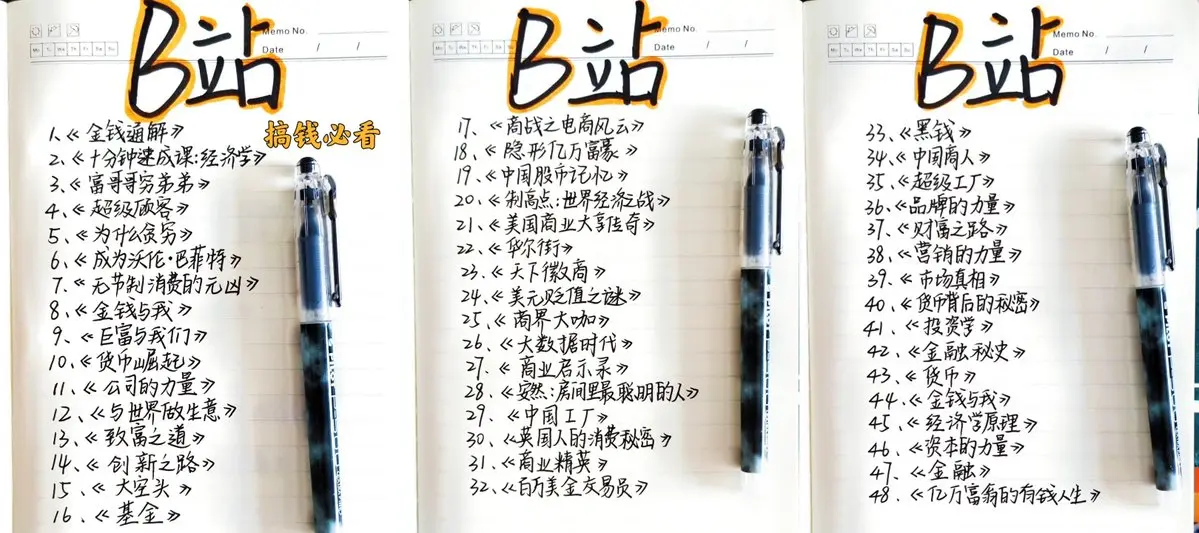 B站
Memo No.
Date / /
Mo Tu We Th Fr Sa Su
搞钱必看
1、《金钱通解》
2、《十分钟速成课:经济学》
3、《富哥哥穷弟弟》
4、《超级顾客》
5、《为什么贫穷》
6、《成为沃伦·巴菲特》
7、《无节制消费的元凶》
8、《金钱与我》
9、《巨富与我们》
10、《货币崛起》
11、《公司的力量》
12、《与世界做生意》
13、《致富之道》
14、《创新之路》
15、《大空头》
16、《基金》
B站
Memo No.
Date / /
Mo Tu We Th Fr Sa Su
17、《商战之电商风云》
18、《隐形亿万富豪》
19、《中国股市记忆》
20、《制高点:世界经济之战》
21、《美国商业大亨传奇》
22、《华尔街》
23、《天下徽商》
24、《美元贬值之谜》
25、《商界大咖》
26、《大数据时代》
27、《商业启示录》
28、《安然:房间里最聪明的人》
29、《中国工厂》
30、《英国人的消费秘密》
31、《商业精英》
32、《百万美金交易员》
B站
Memo No.
Date / /
Mo Tu We Th Fr Sa Su
33、《黑钱》
34、《中国商人》
35、《超级工厂》
36、《品牌的力量》
37、《财富之路》
38、《营销的力量》
39、《市场真相》
40、《货币背后的秘密》
41、《投资学》
42、《金融秘史》
43、《货币》
44、《金钱与我》
45、《经济学原理》
46、《资本的力量》
47、《金融》
48、《亿万富翁的有钱人生》